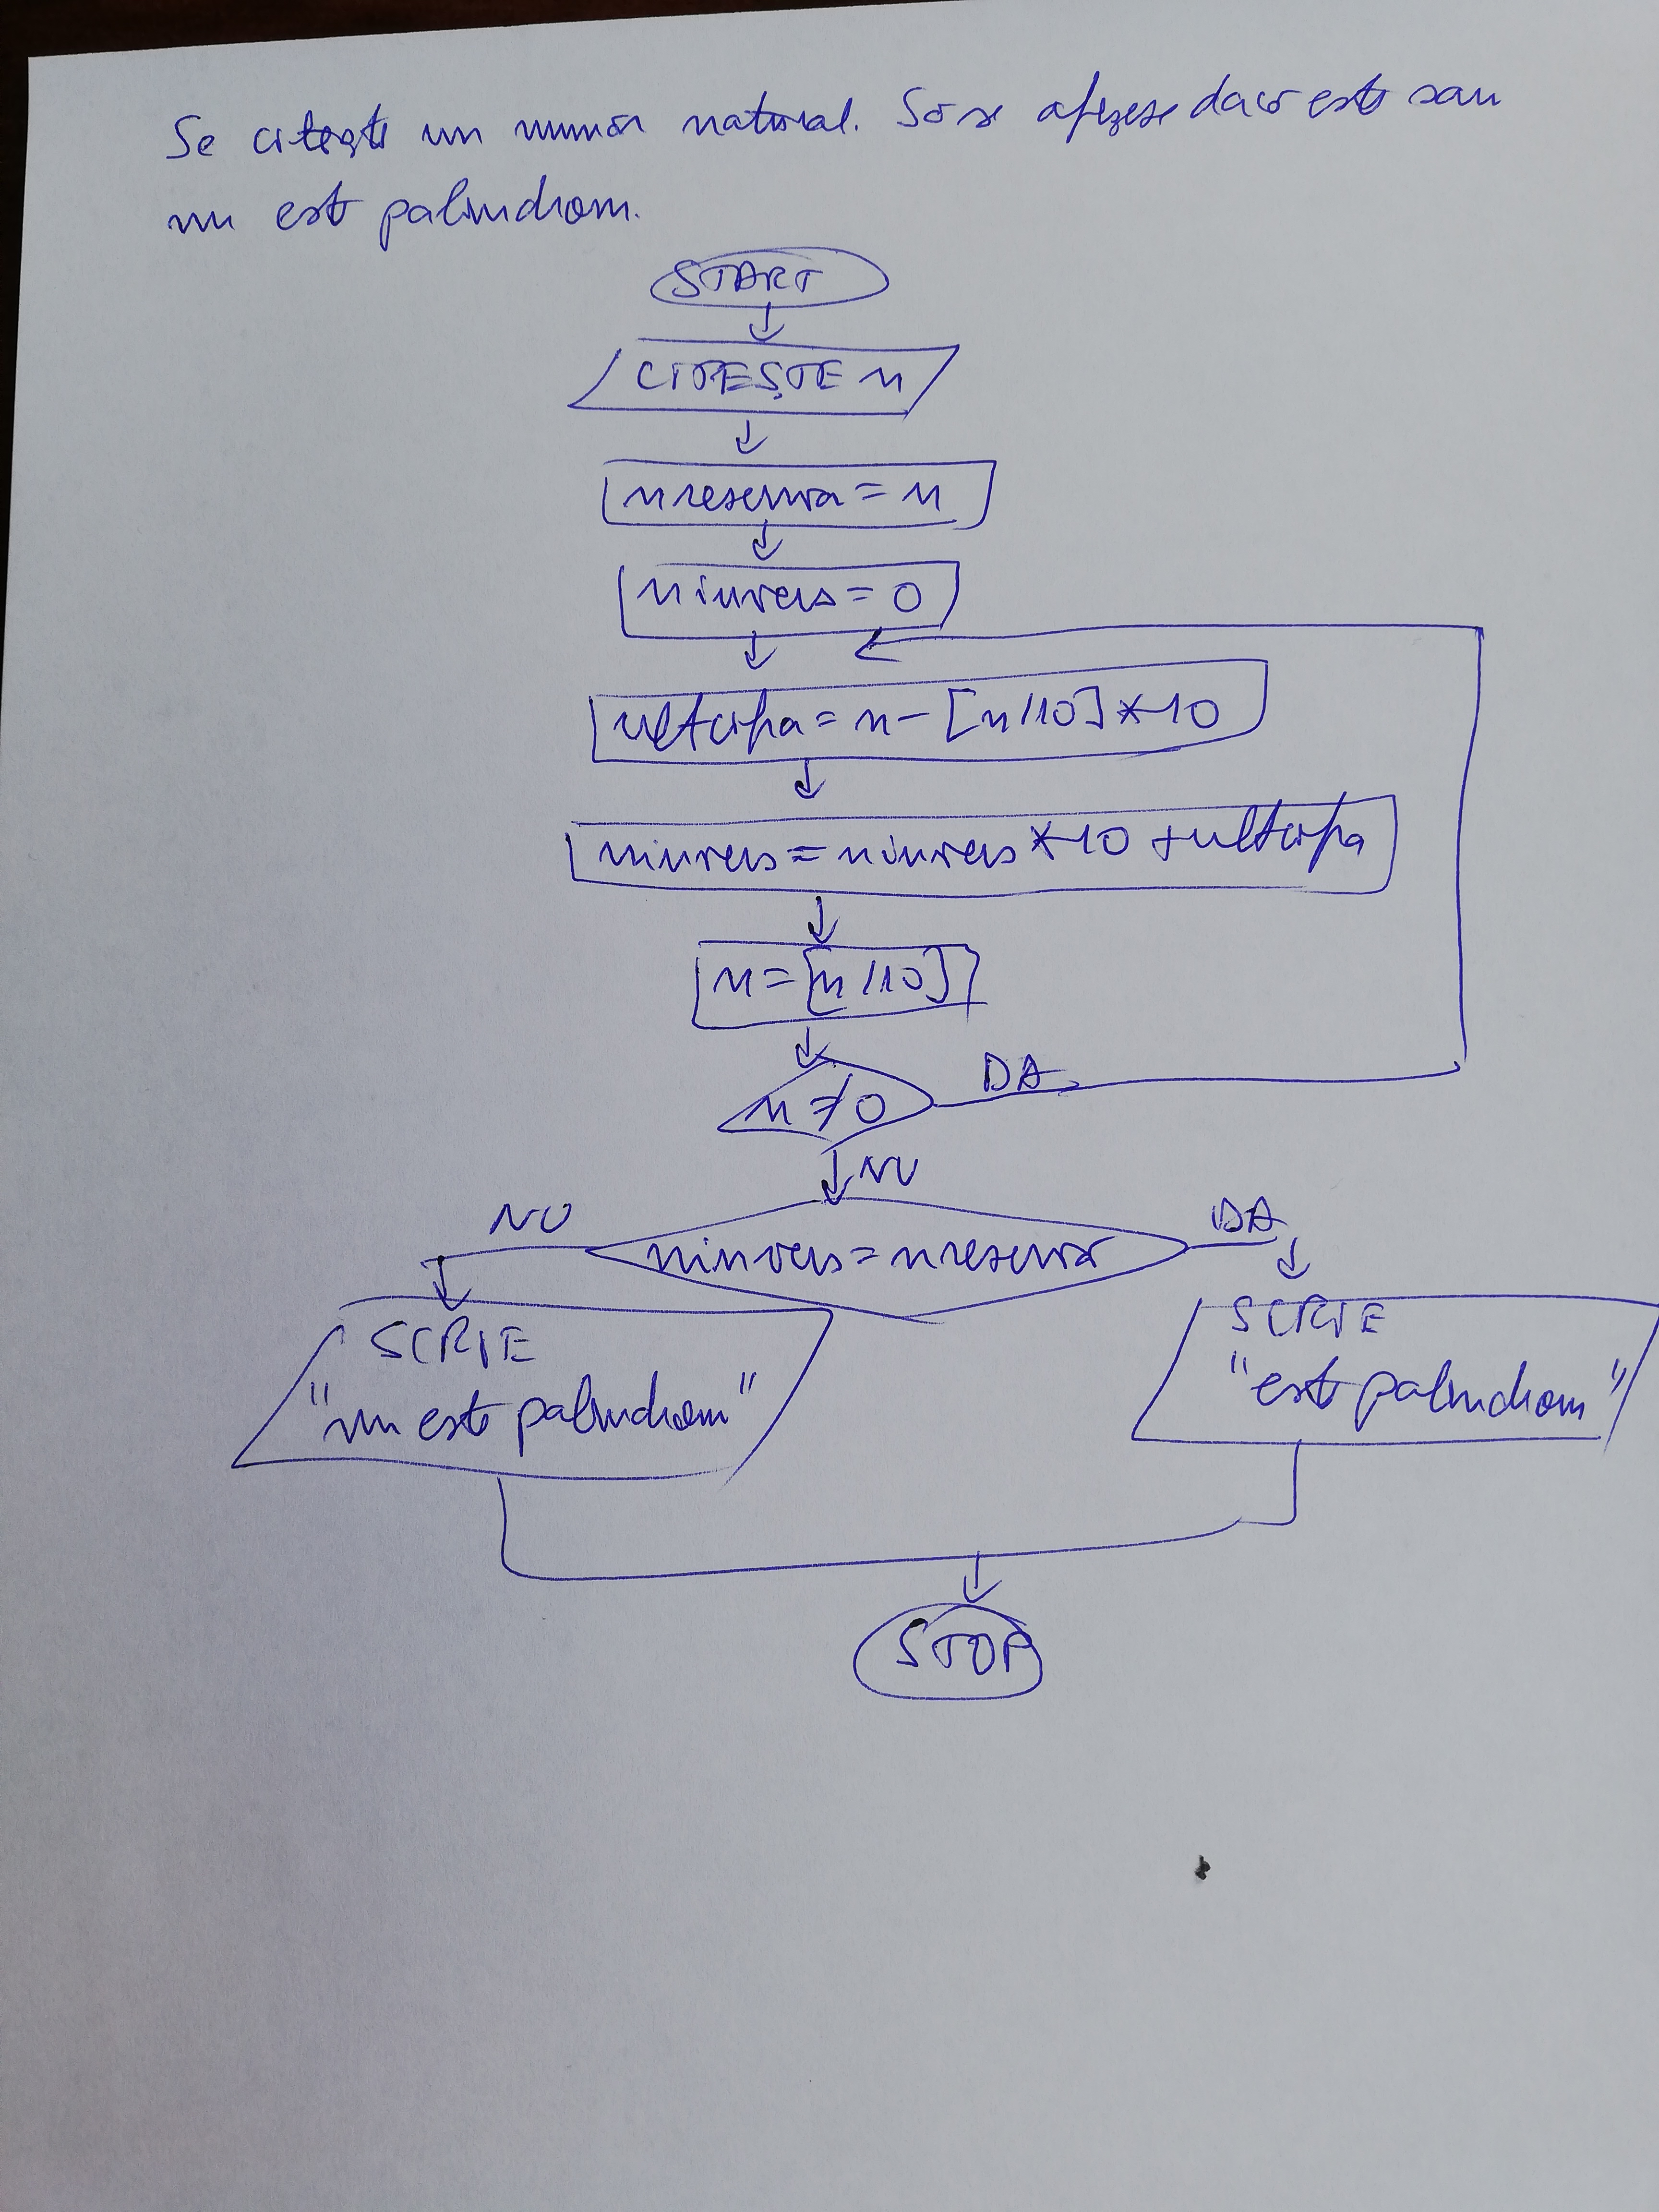 Se citește un număr natural. Să se afișeze dacă este sau
nu este palindrom.
START
CITEȘTE n
nrezerva = n
ninvers = 0
ultcifra = n - [n/10] * 10
ninvers = ninvers * 10 + ultcifra
n = [n/10]
n ≠ 0 DA
NU
NU ninvers = nrezerva DA
SCRIE SCRIE
"nu este palindrom" "este palindrom"
STOP